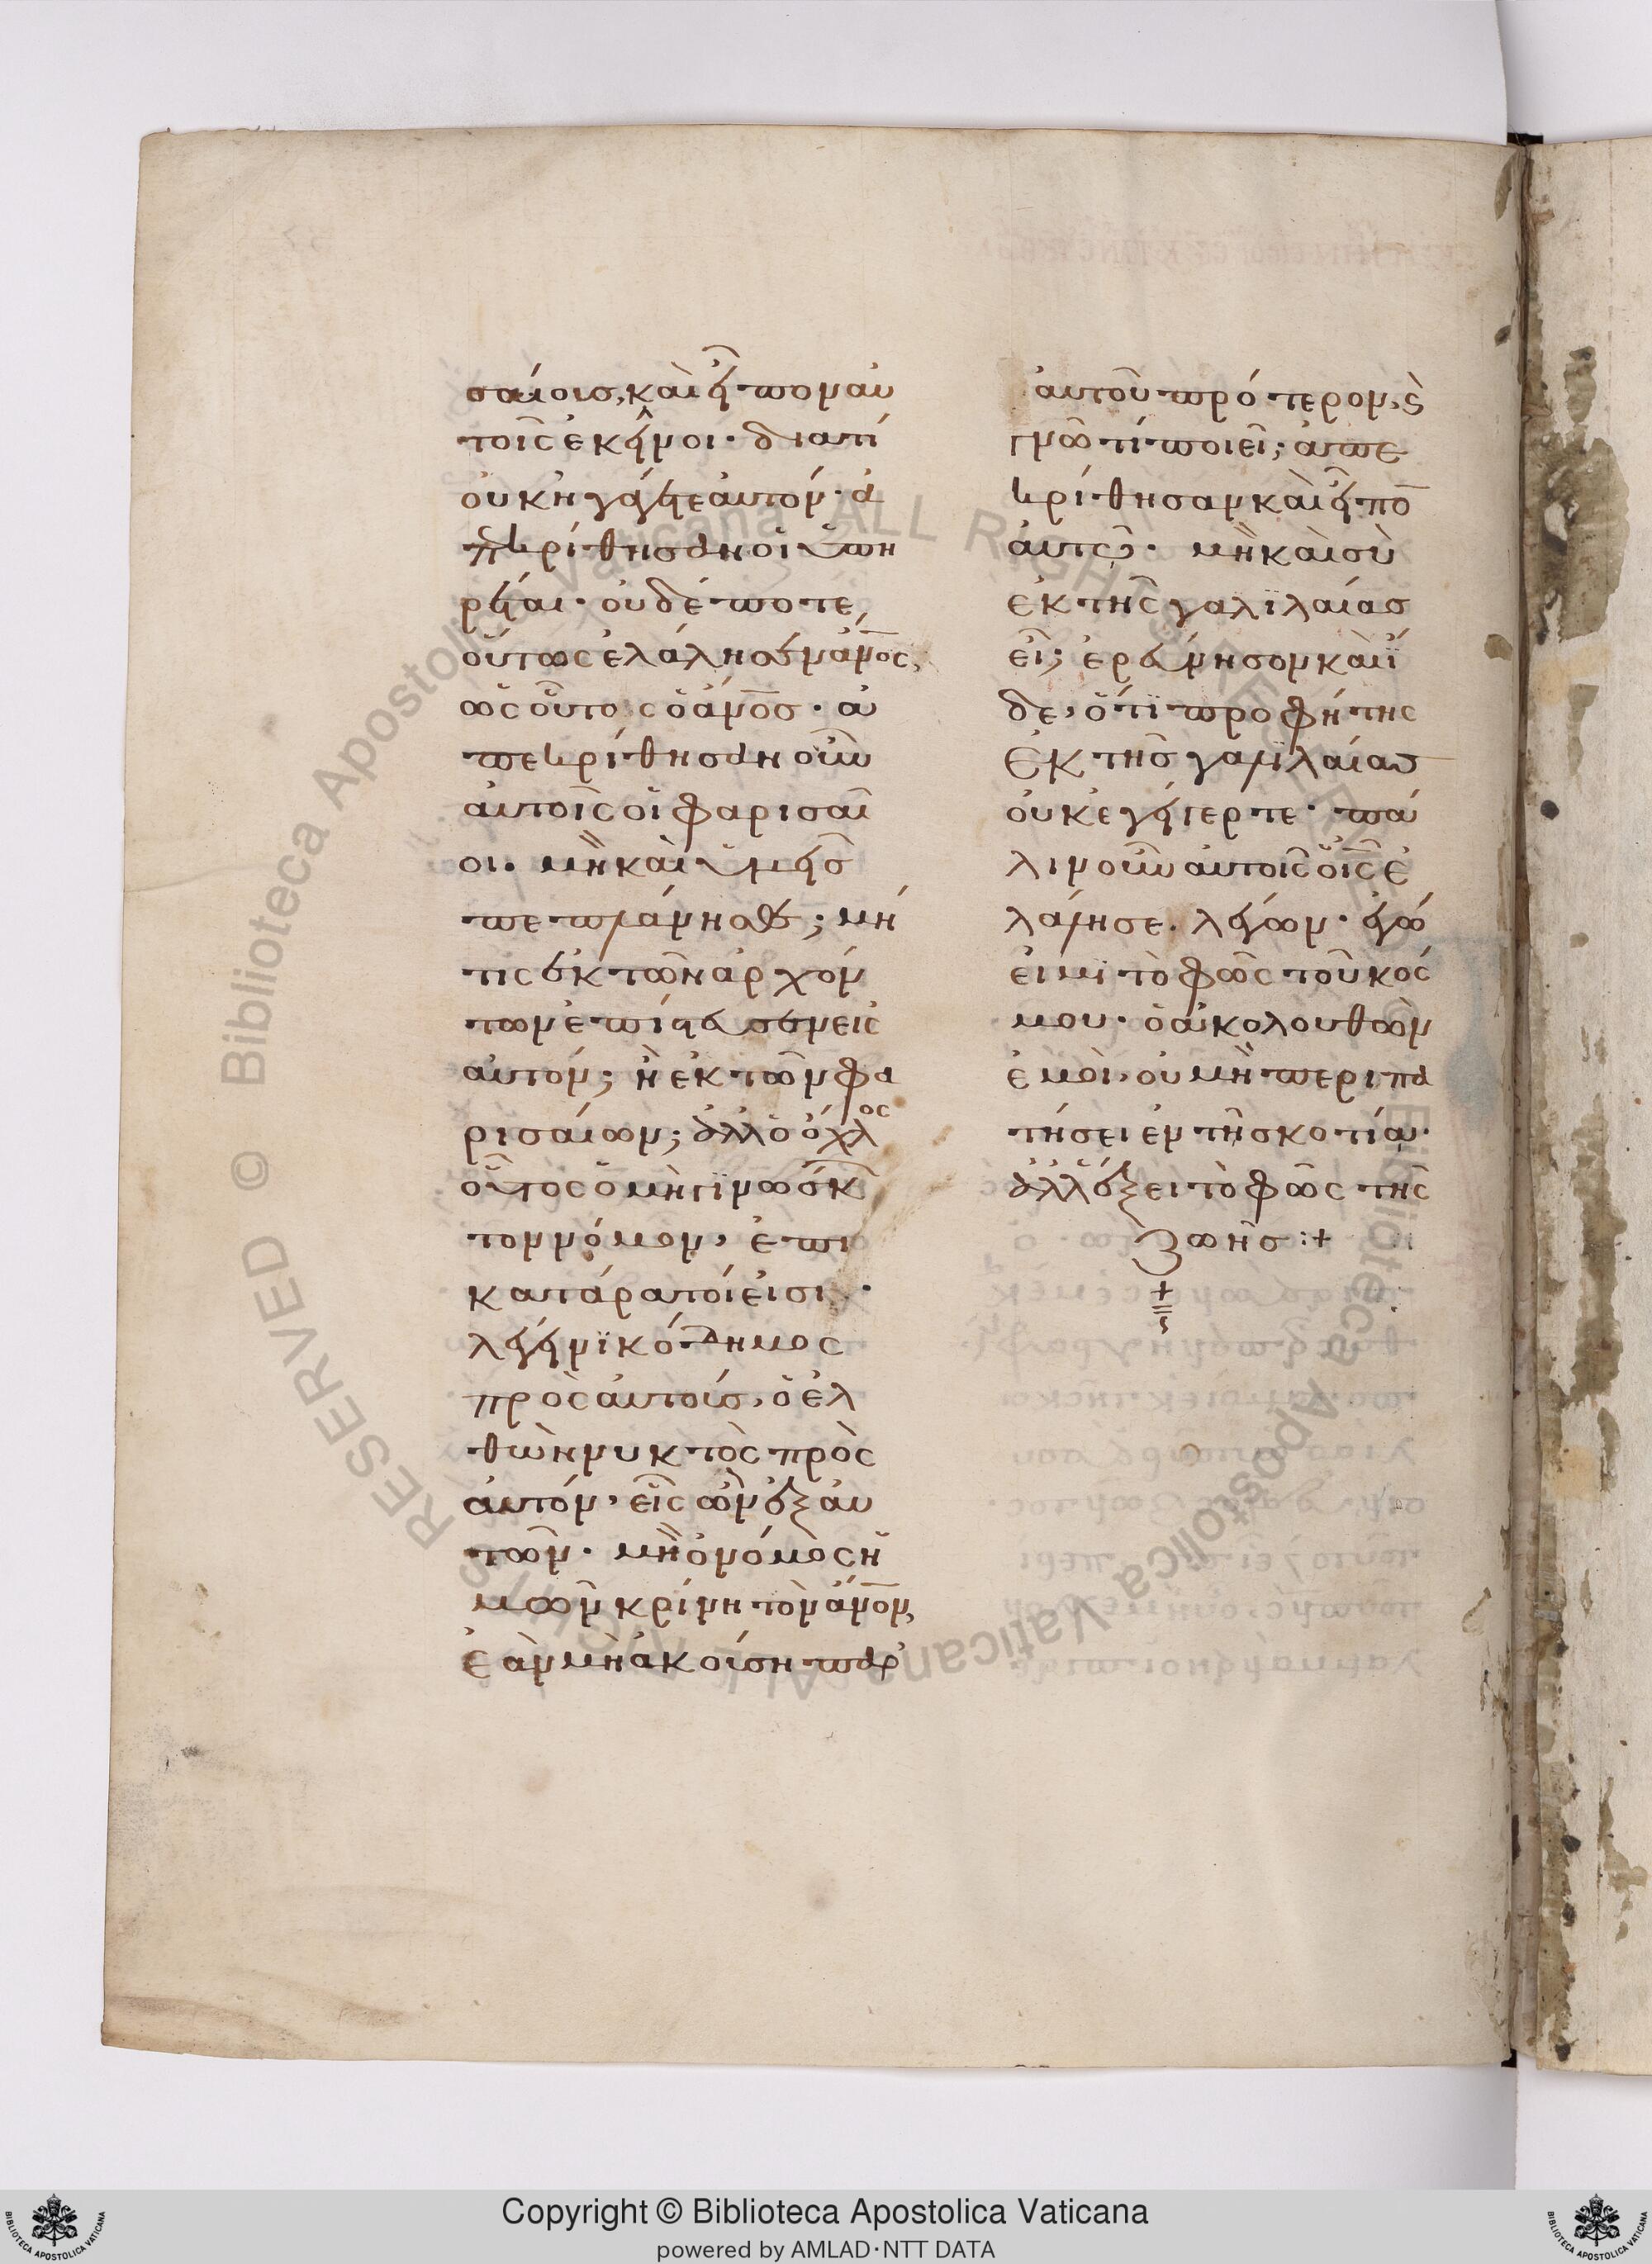 σαίους, καὶ εἶπον αὐ
τοῖς ἐκεῖνοι· διατί
οὐκ ἠγάγετε αὐτόν· ἀ
πεκρίθησαν οἱ ὑπη
ρέται· οὐδέποτε
οὕτως ἐλάλησεν ἄνος,
ὡς οὗτος ὁ ἄνος· ἀ
πεκρίθησαν οὖν
αὐτοῖς οἱ φαρισαῖ
οι· μὴ καὶ ὑμεῖς
πεπλάνησθε; μή
τις ἐκ τῶν ἀρχόν
των ἐπίστευσεν εἰς
αὐτόν; ἢ ἐκ τῶν φα
ρισαίων; ἀλλ ὁ ὄχλος
οὗτος ὁ μὴ γινώσκ
τον νόμον, ἐπι
κατάρατοί εἰσι·
λέγει νικόδημος
πρὸς αὐτούς, ὁ ἐλ
θὼν νυκτὸς πρὸς
αὐτόν, εἷς ὢν ἐξ αὐ
τῶν· μὴ ὁ νόμος ἡ
μῶν κρίνη τὸν ἄνον,
ἐὰν μὴ ἀκούση παρ
αὐτοῦ πρότερον, ϛ
γνῶ τί ποιεῖ; ἀπε
κρίθησαν καὶ εἶπο
αὐτῷ· μὴ καὶ σὺ
ἐκ τῆς γαλϊλαίας
εἶ; ἐρεύνησον καὶ ἴ
δε, ὅτϊ προφήτης
ἐκ τῆς γαλϊλαίας
οὐκ ἐγήγερτε· πά
λιν οὖν αὐτοῖς ὁ ις ἐ
λάλησε· λέγων· ἐγώ
εἰμϊ τὸ φῶς τοῦ κόσ
μου· ὁ ἀκολουθῶν
ἐμοὶ, οὐ μὴ περιπα
τήσει ἐν τῆ σκοτία·
ἀλλ ἕξει τὸ φῶς τῆς
ζωῆς :+
Copyright © Biblioteca Apostolica Vaticana
powered by AMLAD·NTT DATA